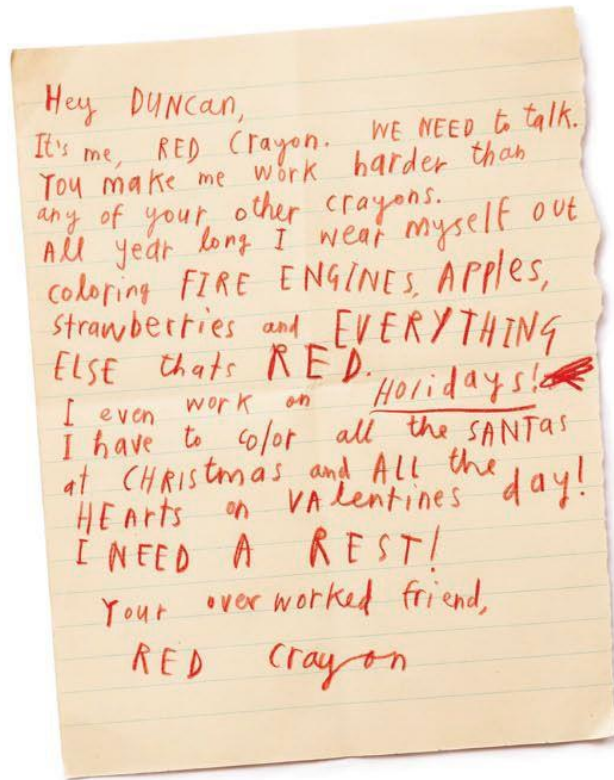 Hey DUNCan,
It's me, RED Crayon. WE NEED to talk.
You make me work harder than
any of your other crayons.
All year long I wear myself out
coloring FIRE ENGINES, APples,
strawberries and EVERYTHING
ELSE thats RED.
I even work on Holidays!
I have to color all the SANTas
at CHRIStmas and All the
HEArts on VAlentines day!
I NEED A REST!
Your overworked friend,
RED Crayon